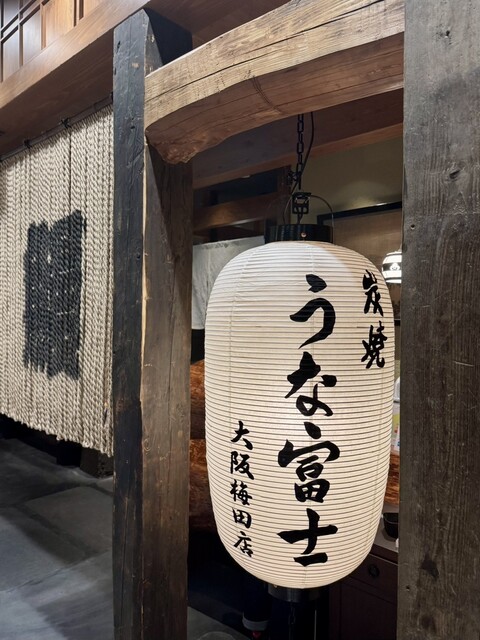 炭焼
うな富士
大阪梅田店